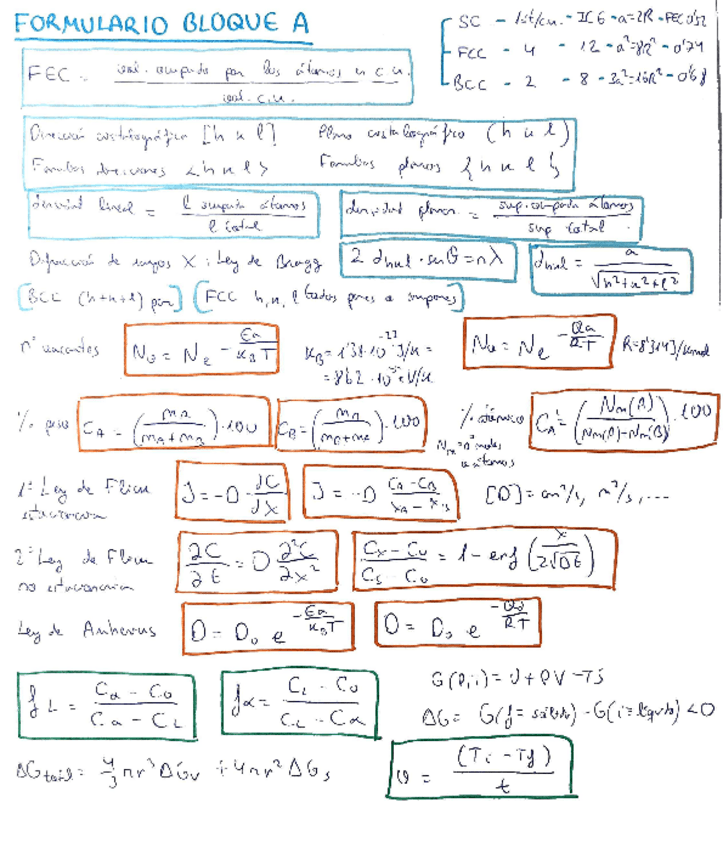 FORMULARIO BLOQUE A
SC - 1at/c.u. - IC 6 - a=2R - FEC 0'52
FCC - 4 - 12 - a²=8R² - 0'74
BCC - 2 - 8 - 3a²=16R² - 0'68
FEC = vol. ocupado por los átomos en c.u. / vol. c.u.
Dirección cristalográfica [h k l] Plano cristalográfico (h k l)
Familias direcciones <h k l> Familias planos {h k l}
densidad lineal = l ocupada átomos / l total
densidad planar = sup. ocupada átomos / sup total
Difracción de rayos X: Ley de Bragg 2 dhkl · senθ = nλ dhkl = a / √h²+k²+l²
[BCC (h+k+l) par] [FCC h, k, l todos pares o impares]
nº vacantes Nv = N e^-Ea/KBT KB = 1'38·10^-23 J/K = Nv = N e^-Qa/RT R=8'314J/Kmol
= 8'62·10^-5 eV/K
% peso CA = (mA / mA+mB)·100 CB = (mB / mB+mA)·100 % atómico CA' = (Nm(A) / Nm(A)-Nm(B))·100
Nm = nº moles
o átomos
1ª Ley de Flick J = -D dC/dX J = -D CA-CB / XA-XB [D] = cm²/s, m²/s, ...
estacionaria
2ª Ley de Flick ∂C/∂t = D ∂²C/∂x² Cx-C0 / Cs-C0 = 1 - erf (x / 2√Dt)
no estacionaria
Ley de Arrhenius D = D0 e^-Ea/KBT D = D0 e^-Qd/RT
fL = Cα - C0 / Cα - CL fα = CL - C0 / CL - Cα
G(P,i) = U + PV - TS
ΔG = G(f=sólido) - G(i=líquido) < 0
ΔGtotal = 4/3 πr³ ΔGv + 4πr² ΔGs
v = (Ti - Tf) / t